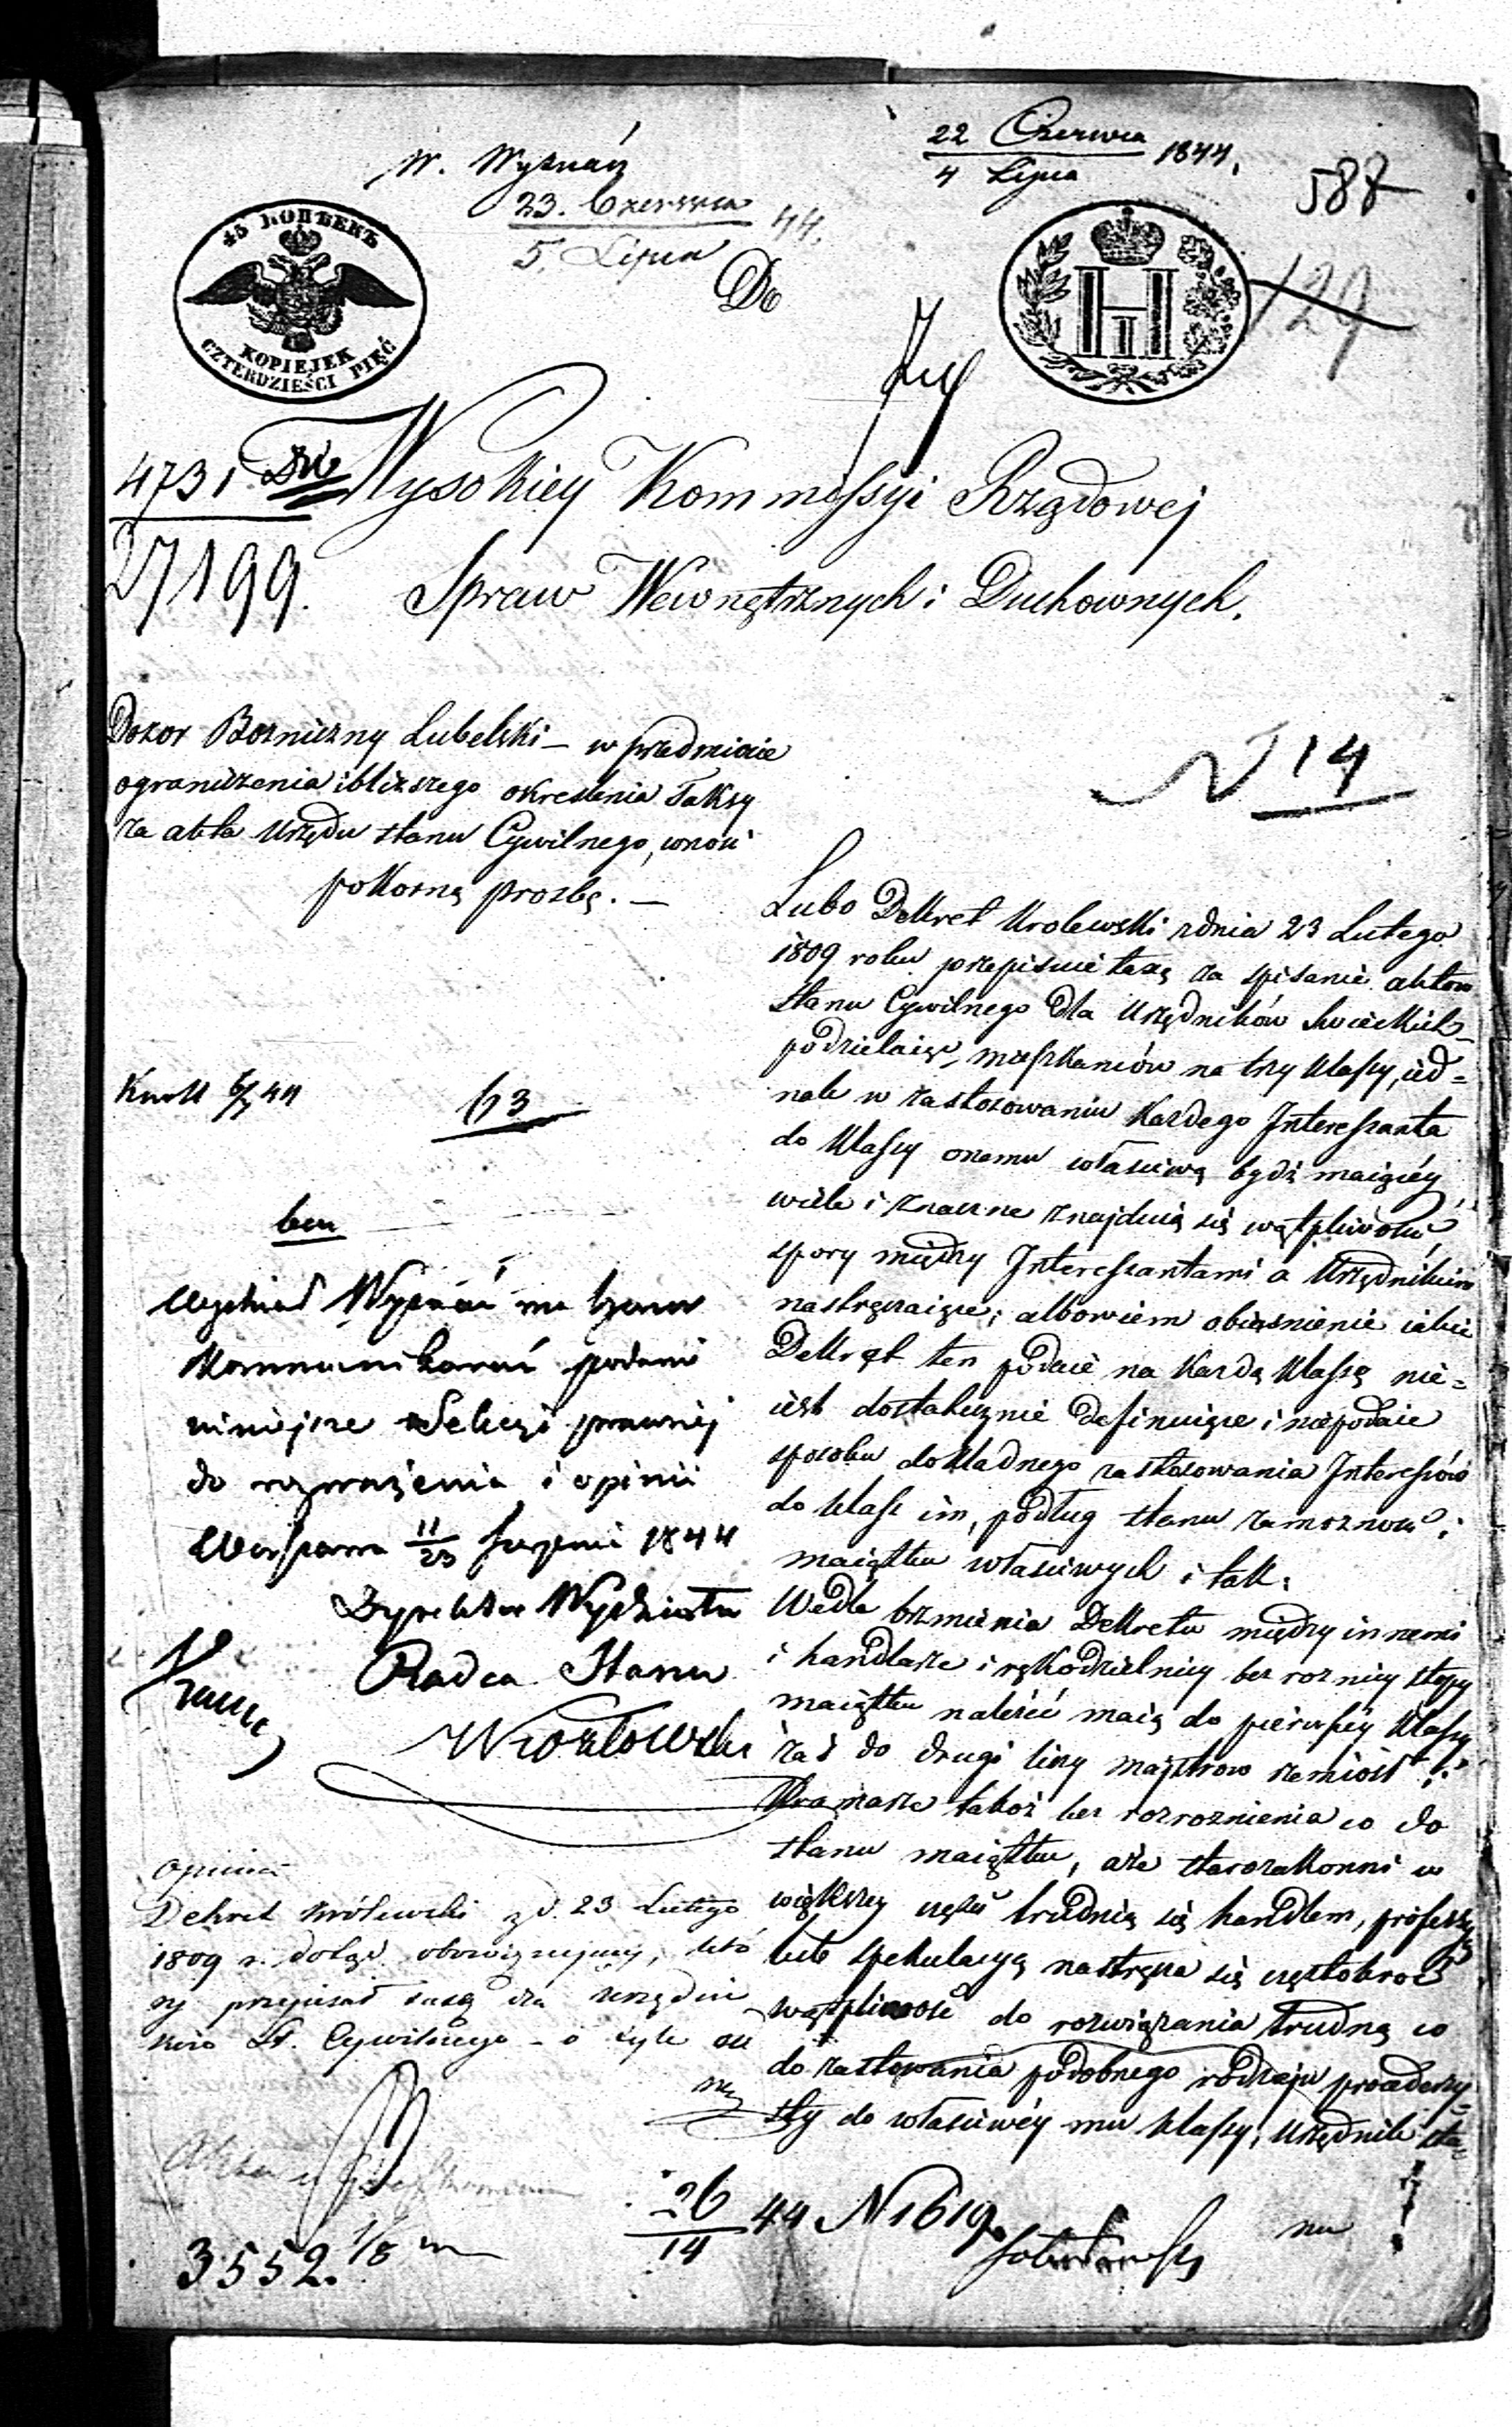 22 Czerwca
4 Lipca 1844.
587
W. Wyznań
23. Czerwca
5. Lipca 44.
45 КОПѢЕКЪ
KOPIEJEK
CZTERDZIEŚCI PIĘĆ
129
Do
4731
27199.
Wysokiey Kommissyi Rządowej
Spraw Wewnętrznych i Duchownych.
Dozor Bozniczny Lubelski – w przedmiocie
ograniczenia i bliższego okreslenia Taksy
za akta Urzędu stanu Cywilnego, wnosi
pokorną prozbę. –
N 14
Lubo Dekret Krolewski z dnia 23 Lutego
1809 roku przepisuie taxę za spisanie aktow
stanu Cywilnego dla Urzędników Swieckich
podzielaiąc mieszkańców na trzy klassy, ied=
nak w zastosowaniu Każdego Interessanta
do Klassy onemu własciwą bydź maiącéy
wiele i znaczne znajduią się wątpliwosci,
spory między Interessantami a Urzędnikiem
nastręczaiące; albowiem obiasnienie iakie
Dekret ten podaie na Każdą Klassę nie=
iest dostatecznie definiuiące i niepodaie
sposobu dokładnego zastosowania Interessów
do Klass im, podług stanu zamoznosci i
maiątku własciwych i tak:
Wedle brzmienia Dekretu między innemi
i handlarze i rękodzielnicy bez roznicy stopy
maiątku należeć maią do pierwszéy Klassy
zaś do drugi liczy majstrow rzemiosł i
Kramarze takoż bez rozroznienia co do
stanu maiątku, a że starozakonni w
większey częsci trudnią się handlem, professyą
lub spekulacyą nastręcza się częstokroć
wątpliwość do rozwiązania trudną co
do zastowania podobnego rodzaju proceder
do własciwéy mu klassy, Urzędnik sta=
nu
63
Wydział Wyznań ma honor
Kommunikować podanie
niniejsze Sekcyi prawnej
do rozważenia i opinii
Warszawa 11/23 Sierpnia 1844
Dyrektor Wydziału
Radca Stanu
Opinia
Dekret królewski z d. 23 Lutego
1809 r. dotąd obowiązujący, któ
ry przepisał taxę dla urzędni
ków St. Cywilnego – o tyle
26
14 44 N 1619.
3552.